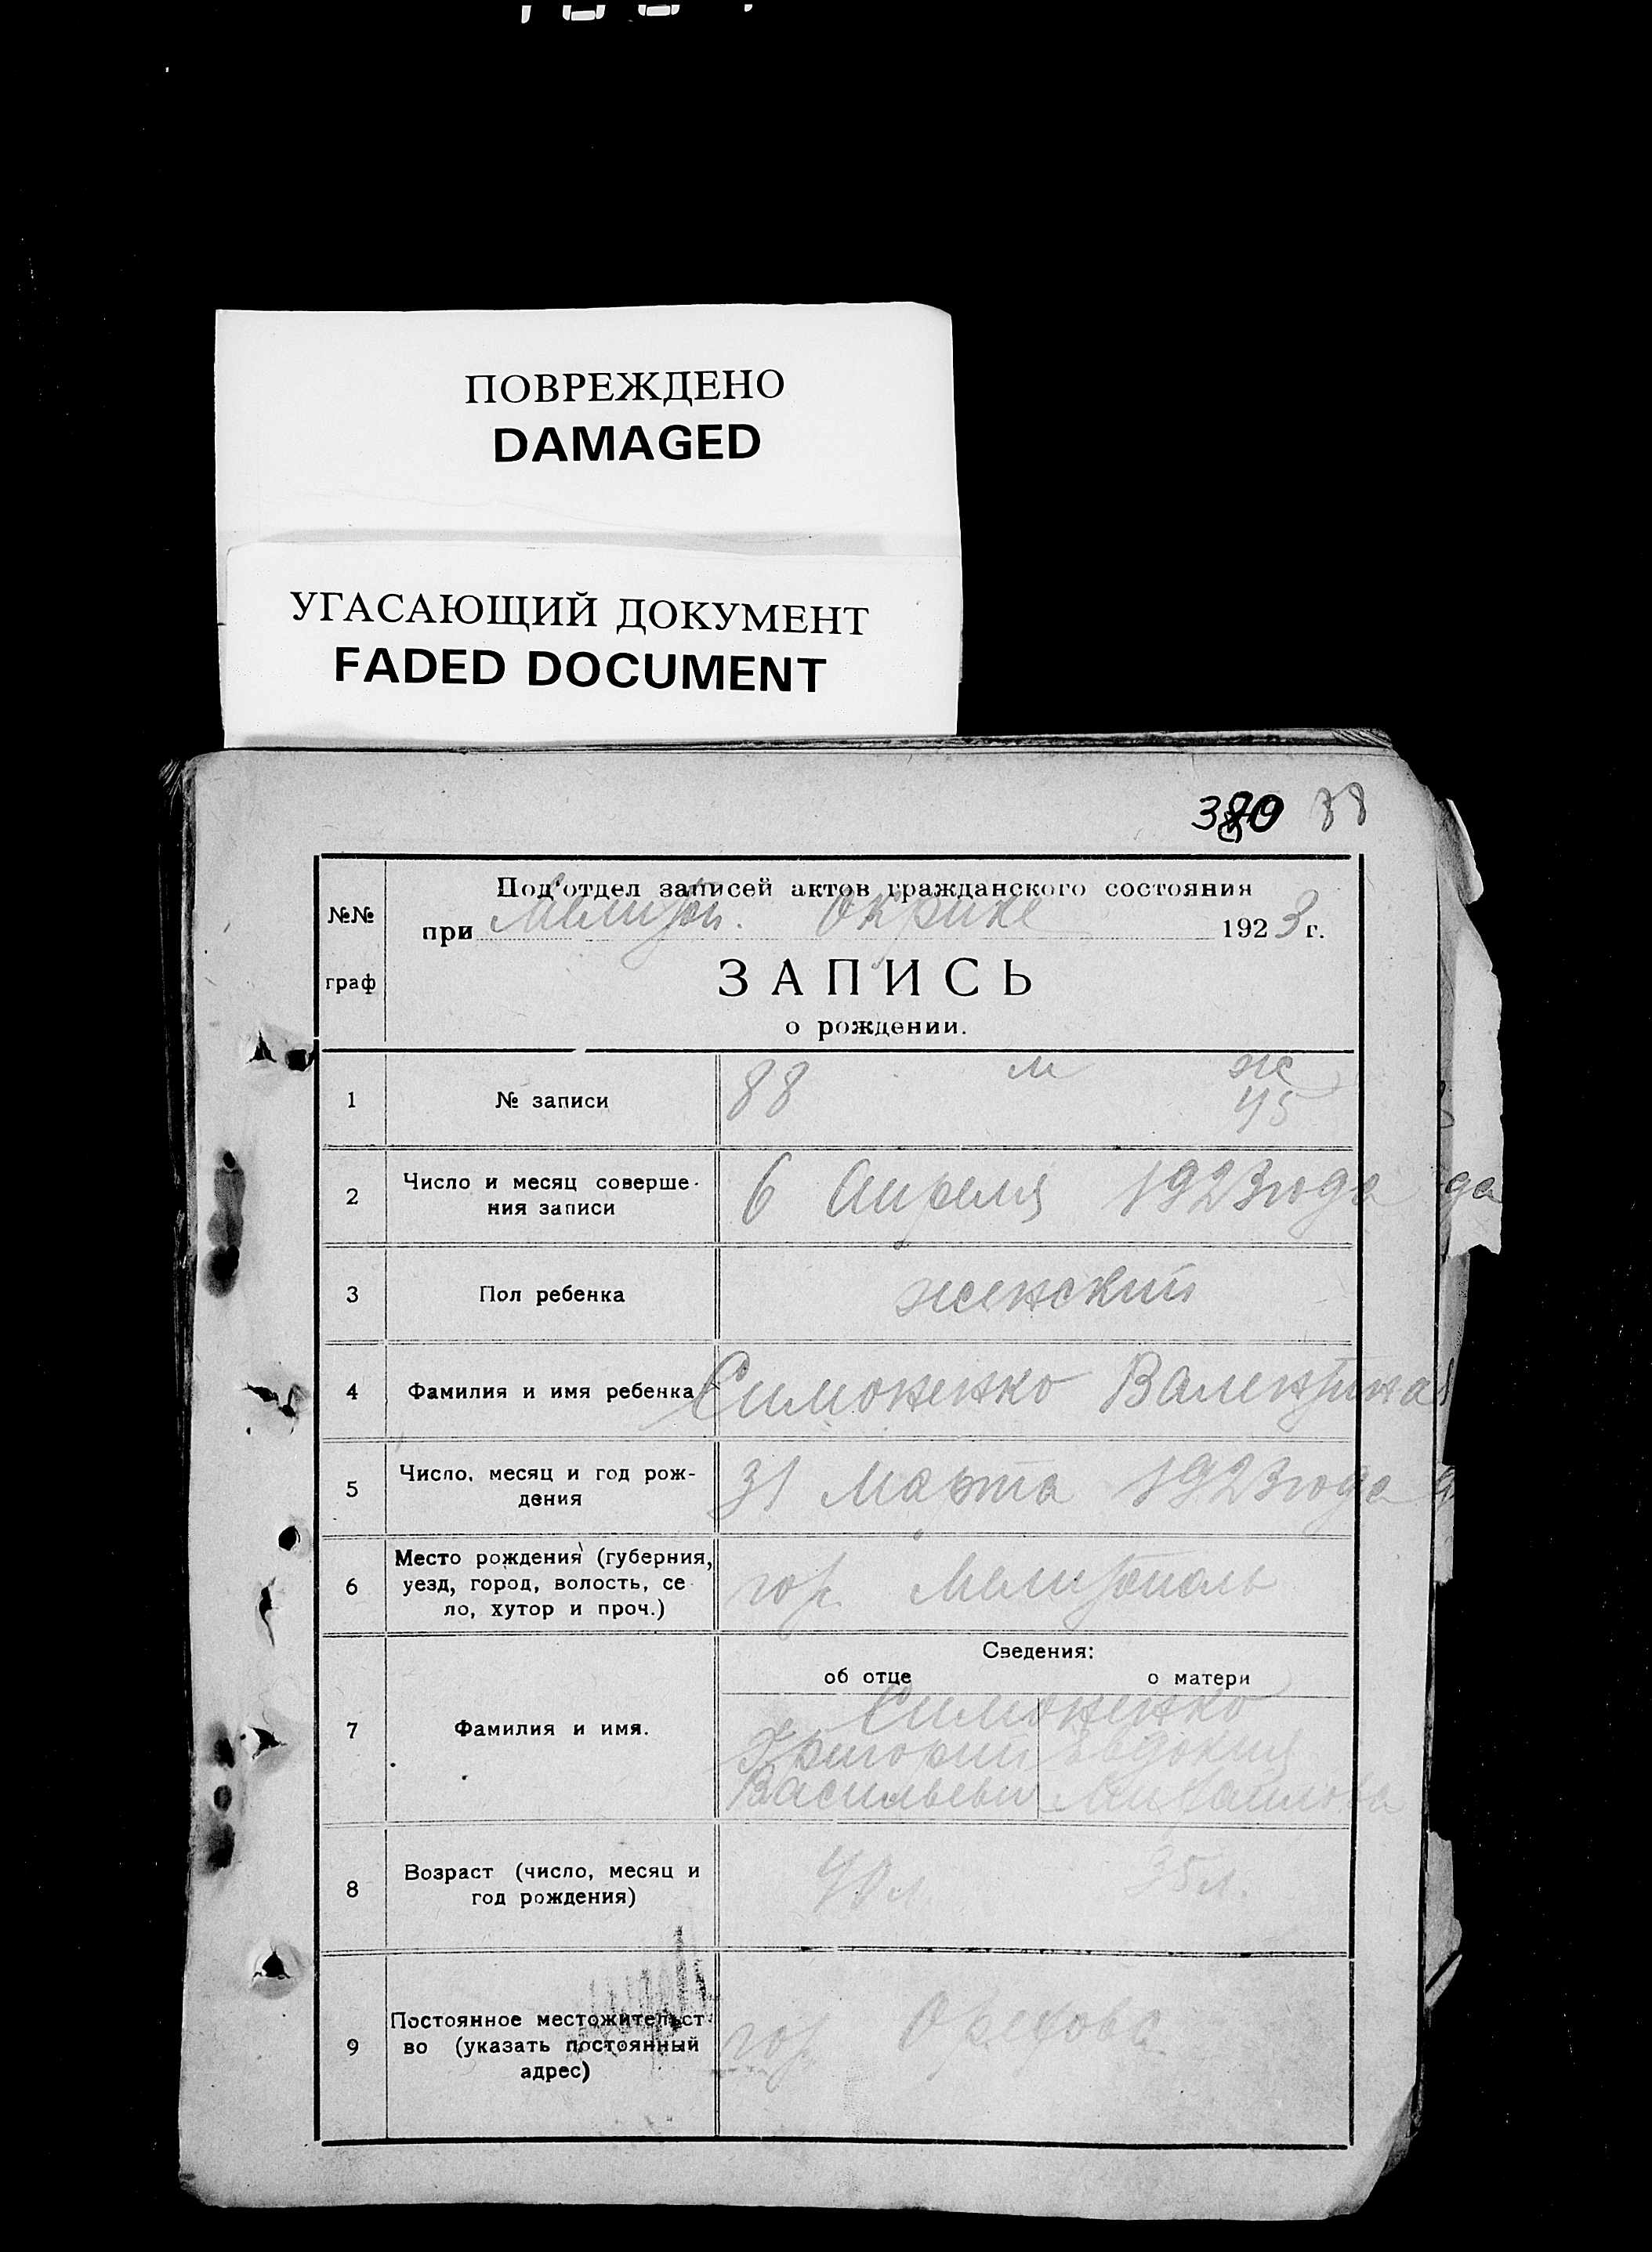 ПОВРЕЖДЕНО
DAMAGED
УГАСАЮЩИЙ ДОКУМЕНТ
FADED DOCUMENT
380 88
№№
граф
Под'отдел записей актов гражданского состояния
при Мелитоп. Окрике 1923 г.
ЗАПИСЬ
о рождении.
м ж
1 № записи 88 45
2 Число и месяц соверше-
ния записи
6 Апреля 1923 года
да
3 Пол ребенка женский
4 Фамилия и имя ребенка Симоненко Валентина
5 Число, месяц и год рож-
дения
31 Марта 1923 года
6 Место рождения (губерния,
уезд, город, волость, се
ло, хутор и проч.)
гор. Мелитополь
Сведения:
об отце о матери
7 Фамилия и имя.
Симоненко
Григорий Евдокия
Васильеви Михайлова
8 Возраст (число, месяц и
год рождения)
40 л 35 л.
9 Постоянное местожительст-
во (указать постоянный
адрес)
гор. Орехово